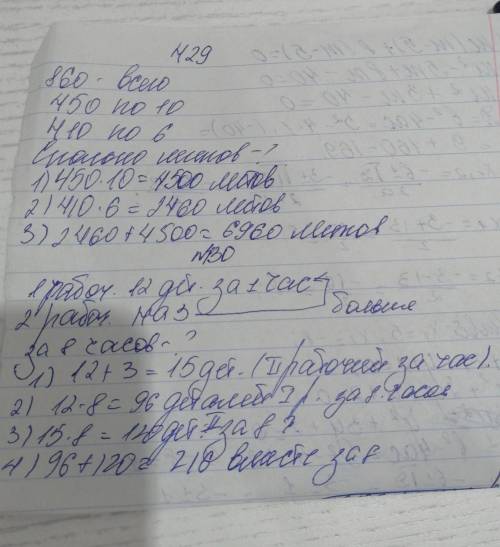 429
860 - всего
450 по 10
410 по 6
Сколько метров - ?
1) 450·10 = 4500 метов
2) 410·6 = 2460 метов
3) 2460 + 4500 = 6960 метов
430
1 рабоч. 12 дет. за 1 час
2 рабоч. На 3 больше
за 8 часов - ?
1) 12 + 3 = 15 дет. (II рабочий за час).
2) 12·8 = 96 деталей I р. за 8 часов
3) 15·8 = 120 дет. II за 8 ч.
4) 96 + 120 = 216 вместе за 8